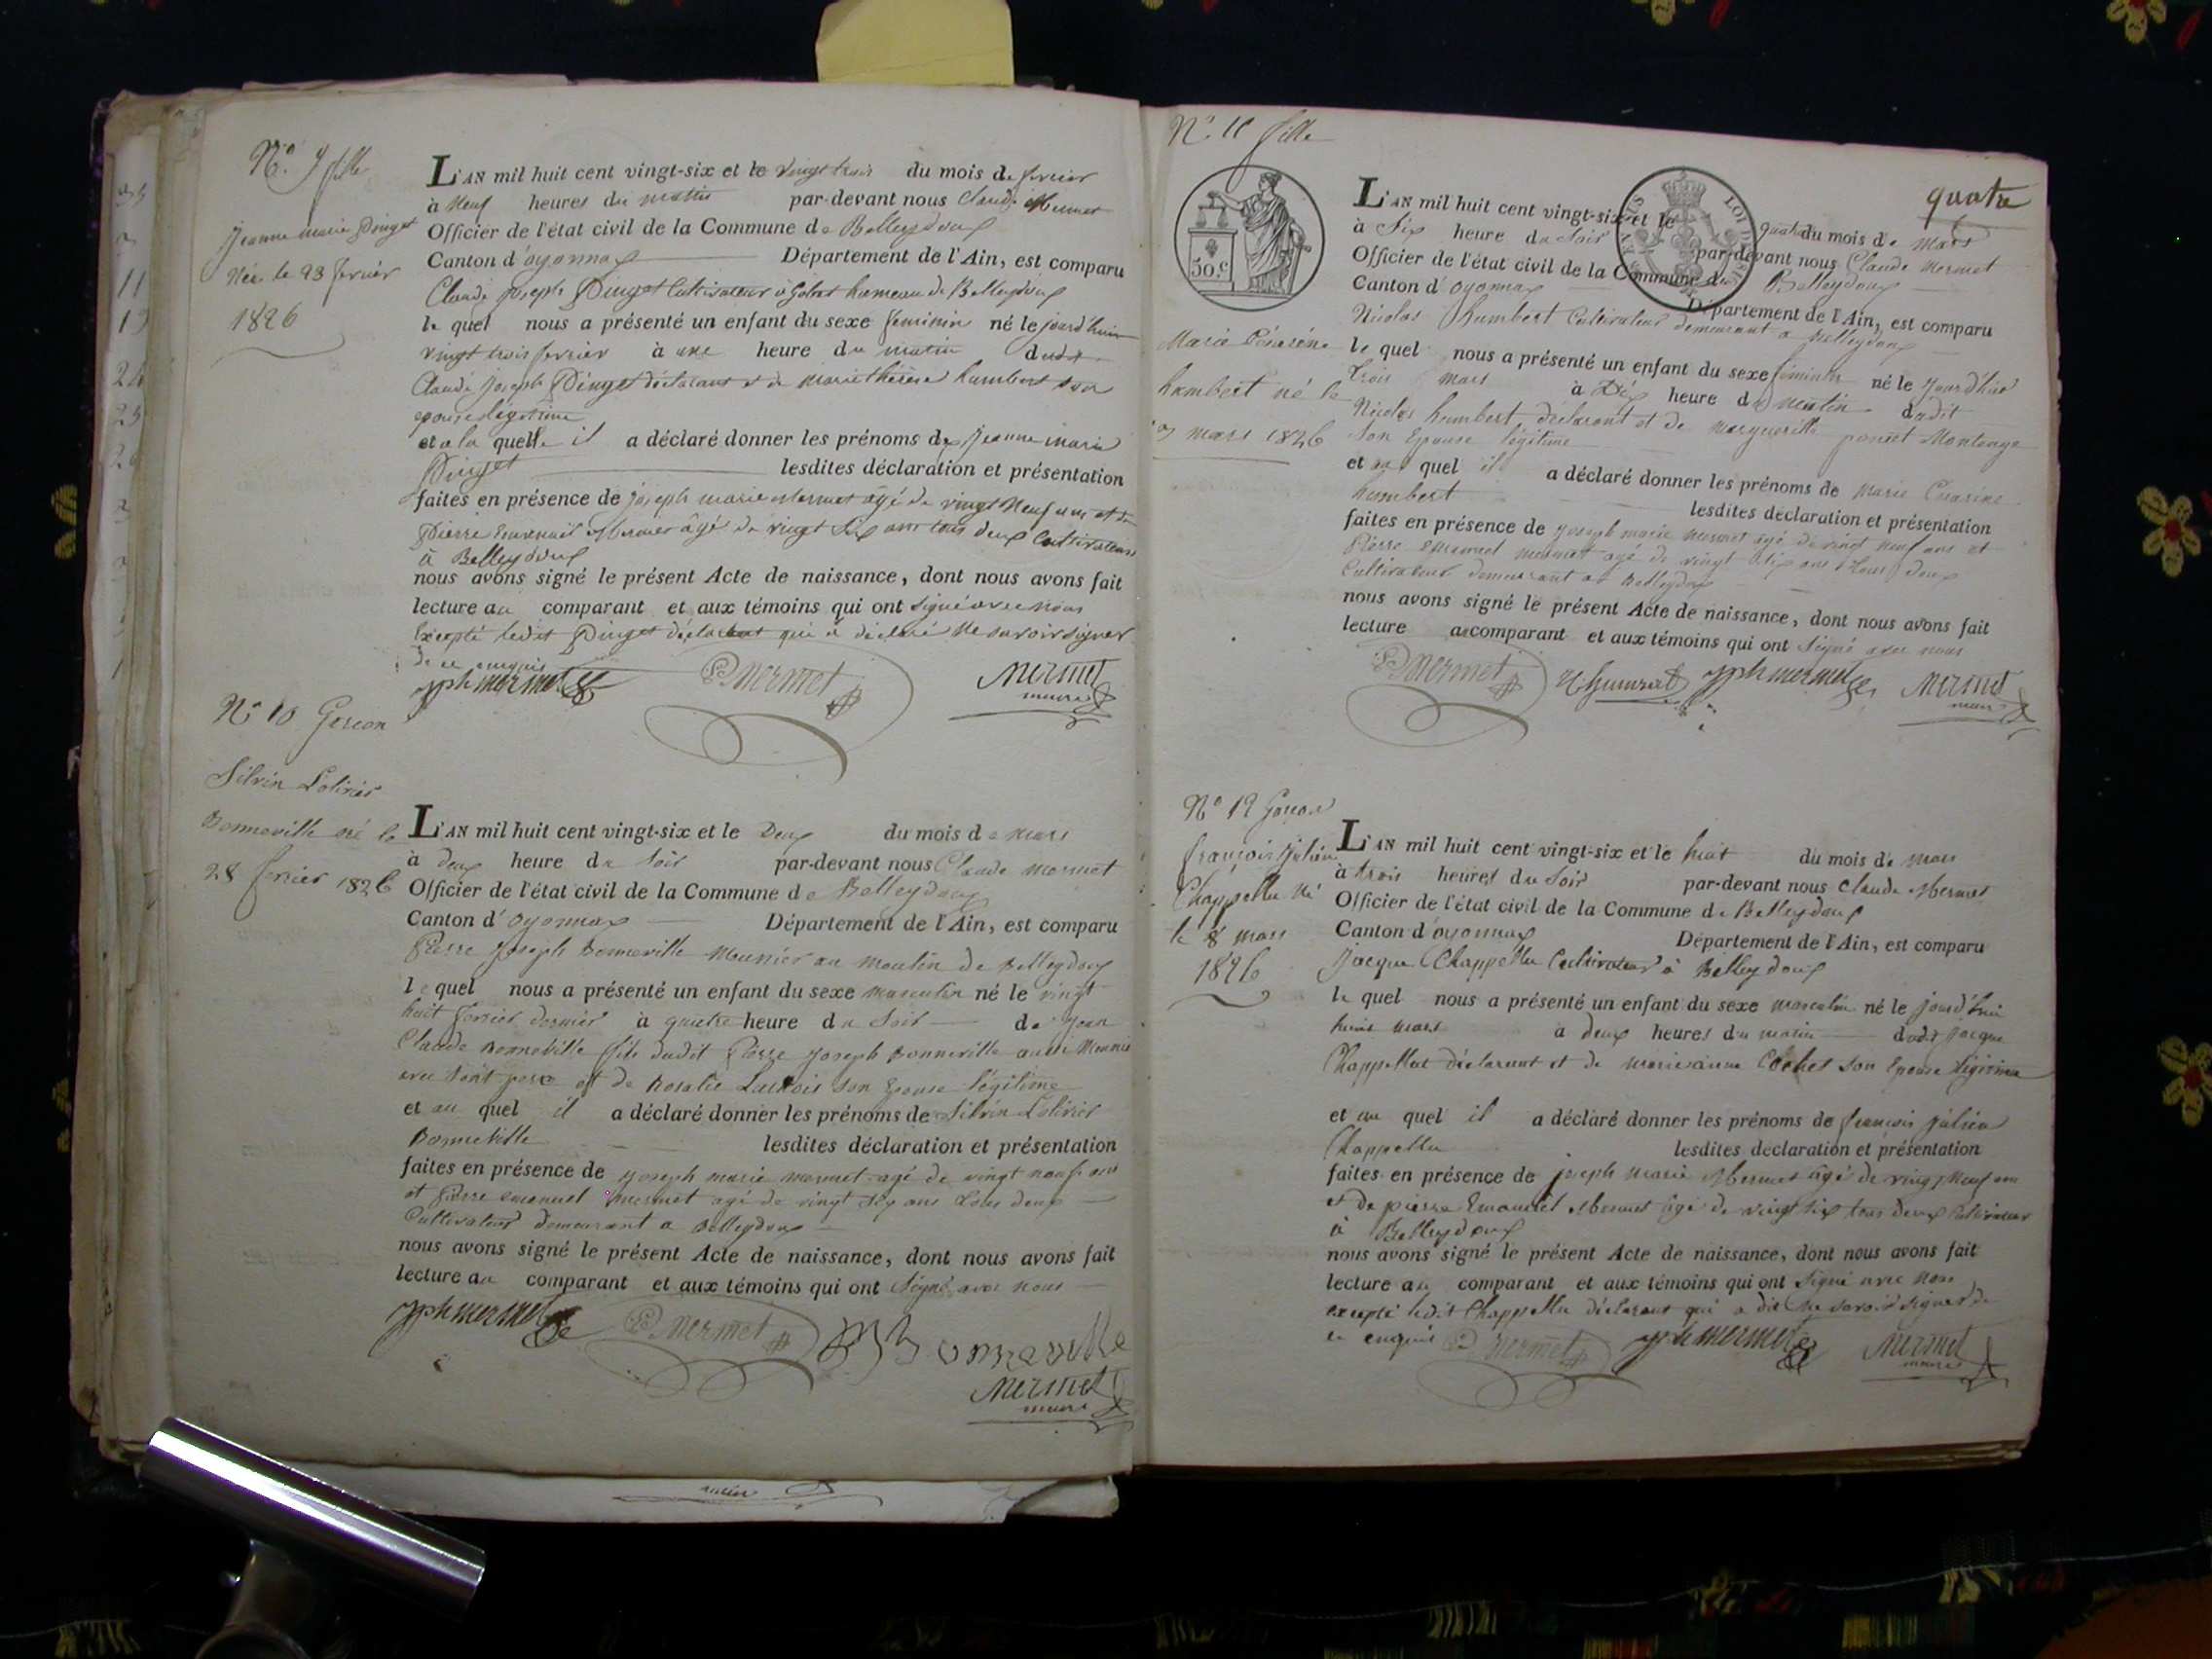 N.º 9 fille
Jeanne marie Pinget
Née le 23 fevrier
1826
L'AN mil huit cent vingt-six et le vingt trois du mois de fevrier
à Neuf heures du matin par-devant nous Claude Mermet
Officier de l'état civil de la Commune de Belleydoux
Canton d'oyonnax Département de l'Ain, est comparu
Claude joseph Pinget Cultivateur à hameau de Belleydoux
le quel nous a présenté un enfant du sexe feminin né le jourd'huis
vingt trois fevrier à une heure du matin dudit
Claude joseph Pinget déclarant et de marie thérèse humbert son
epouse légitime
et a la quelle il a déclaré donner les prénoms de Jeanne marie
Pinget lesdites déclaration et présentation
faites en présence de joseph marie Mermet âgé de vingt Neuf ans et de
Pierre Emanuel Mermet âgé de vingt six ans tous deux Cultivateurs
à Belleydoux
nous avons signé le présent Acte de naissance, dont nous avons fait
lecture au comparant et aux témoins qui ont signé avec nous
Excepté ledit Pinget déclarant qui a déclaré ne savoir signer
de ce enquis
jph mermet P Mermet Mermet
maire
N.º 10 Garcon
Silvin Lolivier
Bonneville né le
28 fevrier 1826
L'AN mil huit cent vingt-six et le Deux du mois de mars
à deux heure du soir par-devant nous Claude mermet
Officier de l'état civil de la Commune de Belleydoux
Canton d'oyonnax Département de l'Ain, est comparu
Pierre Joseph Bonneville Meunier au moulin de Belleydoux
le quel nous a présenté un enfant du sexe masculin né le vingt
huit fevrier dernier à quatre heure du soir de jean
Claude Bonneville fils dudit Pierre Joseph Bonneville aussi Meunier
avec sont pere et de Rosalie son Epouse légitime
et au quel il a déclaré donner les prénoms de Silvin Lolivier
Bonneville lesdites déclaration et présentation
faites en présence de joseph marie mermet agé de vingt neuf ans
et Pierre emanuel mermet agé de vingt six ans tous deux
Cultivateur demeurant a Belleydoux
nous avons signé le présent Acte de naissance, dont nous avons fait
lecture au comparant et aux témoins qui ont signé avec nous
jph mermet P Mermet Bonneville
Mermet
maire
N.º 11 fille
quatre
50.c
LOI DE
Marie Césarine
humbert né le
3 mars 1826
L'AN mil huit cent vingt-six et le quatre du mois de mars
à Six heure du Soir par-devant nous Claude mermet
Officier de l'état civil de la Commune de Belleydoux
Canton d'oyonnax Département de l'Ain, est comparu
Nicolas humbert Cultivateur demeurant a Belleydoux
le quel nous a présenté un enfant du sexe féminin né le jourd'hui
trois mars à Dix heure du matin dudit
Nicolas humbert déclarant et de marguerite poncet Montange
son Epouse légitime
et au quel il a déclaré donner les prénoms de Marie Cesarine
humbert lesdites déclaration et présentation
faites en présence de joseph marie mermet agé de vingt neuf ans et
Pierre emanuel mermet agé de vingt six ans tous deux
Cultivateur demeurant a Belleydoux
nous avons signé le présent Acte de naissance, dont nous avons fait
lecture au comparant et aux témoins qui ont signé avec nous
P Mermet jph mermet Mermet
maire
N.º 12 Garcon
françois Julien
Chappellu Né
le 8 mars
1826
L'AN mil huit cent vingt-six et le huit du mois de mars
à trois heures du soir par-devant nous Claude Mermet
Officier de l'état civil de la Commune de Belleydoux
Canton d'oyonnax Département de l'Ain, est comparu
Jacque Chappellu Cultivateur à Belleydoux
le quel nous a présenté un enfant du sexe masculin né le jourd'hui
huit mars à deux heures du matin dudit Jacque
Chappellu déclarant et de marie anne Cochet son Epouse légitime
et au quel il a déclaré donner les prénoms de françois julien
Chappellu lesdites déclaration et présentation
faites en présence de joseph marie Mermet âgé de vingt Neuf ans
et de pierre Emanuel Mermet âgé de vingt six tous deux Cultivateur
à Belleydoux
nous avons signé le présent Acte de naissance, dont nous avons fait
lecture au comparant et aux témoins qui ont signé avec nous
excepté ledit Chappellu déclarant qui a dit ne savoir signer de
ce enquis P Mermet jph mermet Mermet
maire